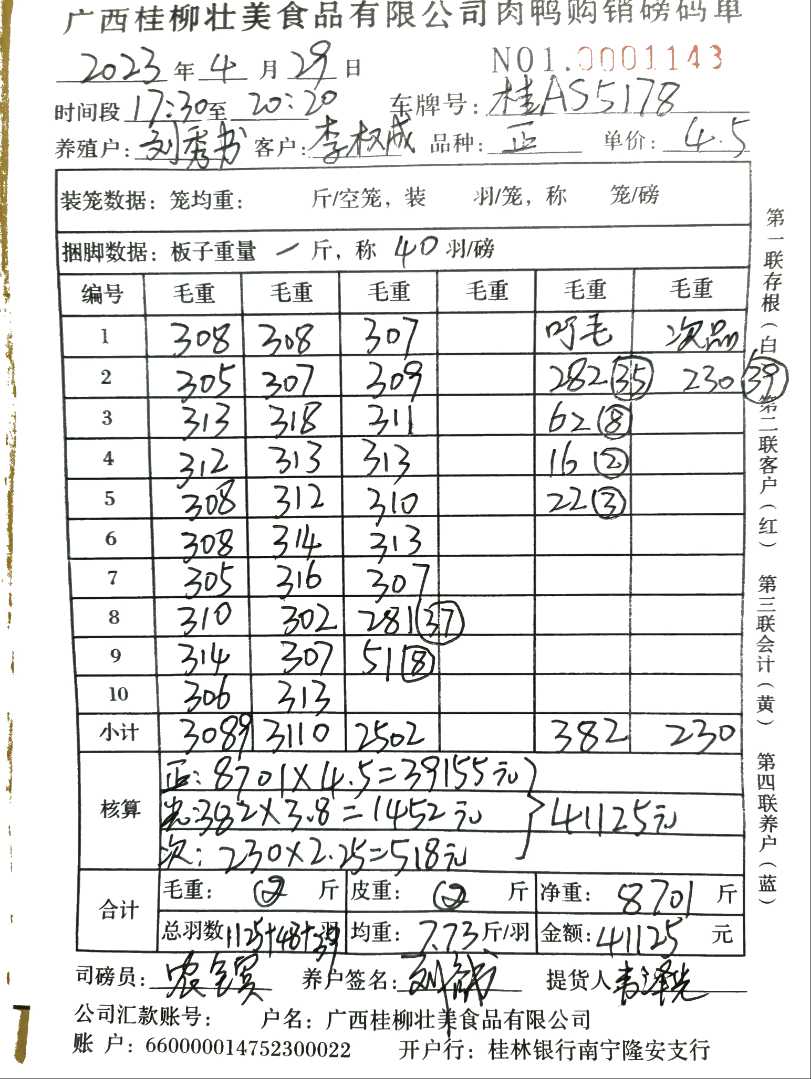 广西桂柳壮美食品有限公司肉鸭购销磅码单
2023年4月29日 NO1.0001143
时间段17:30至20:20 车牌号:桂AS5178
养殖户:刘秀书 客户:李权成 品种:正 单价:4.5
装笼数据:笼均重: 斤/空笼,装 羽/笼,称 笼/磅
捆脚数据:板子重量 一 斤,称 40 羽/磅
编号 毛重 毛重 毛重 毛重 毛重 毛重
1 308 308 307 毛 次品
2 305 307 309 282(35) 230(39)
3 313 318 311 62(8)
4 312 313 313 16(2)
5 308 312 310 22(3)
6 308 314 313
7 305 316 307
8 310 302 281(37)
9 314 307 51(8)
10 306 313
小计 3089 3110 2502 382 230
核算 正:8701×4.5=39155元
光:382×3.8=1452元 41125元
次:230×2.25=518元
合计 毛重: 斤 皮重: 斤 净重:8701斤
总羽数1125+48+39羽 均重:7.73斤/羽 金额:41125元
司磅员: 养户签名: 提货人
公司汇款账号: 户名:广西桂柳壮美食品有限公司
账 户:660000014752300022 开户行:桂林银行南宁隆安支行
第一联存根(白) 第二联客户(红) 第三联会计(黄) 第四联养户(蓝)